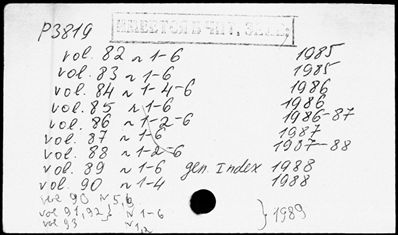 P3819
ИМЕЕТСЯ В ЧИТ. ЗАЛЕ
vol. 82 N 1-6 1985
vol. 83 N 1-6 1985
vol. 84 N 1-4-6 1986
vol. 85 N 1-6 1986
vol. 86 N 1-2-6 1986-87
vol. 87 N 1-6 1987
vol. 88 N 1-2-6 1987-88
vol. 89 N 1-6 gen. Index 1988
vol. 90 N 1-4 1988
vol 90 N 5,6
vol 91,92 } N 1-6 } 1989
vol 93 N 1,2